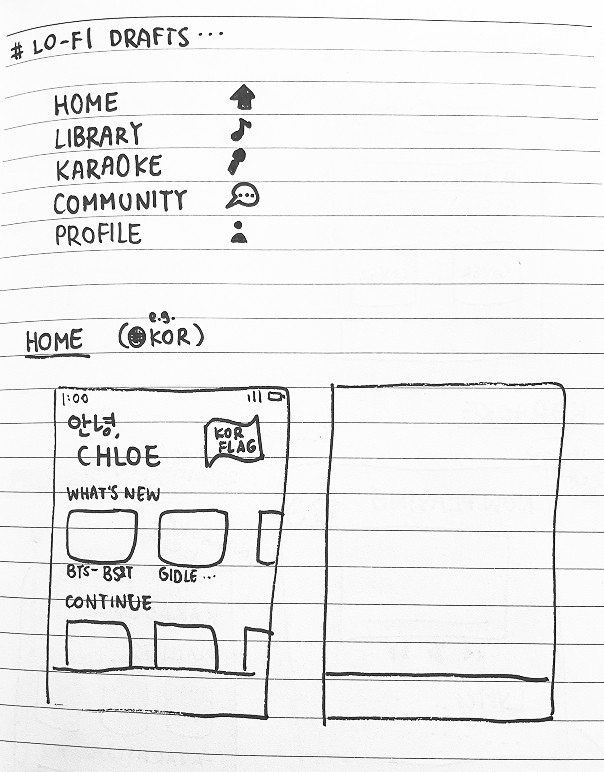 # LO-FI DRAFTS ...
HOME
LIBRARY
KARAOKE
COMMUNITY
PROFILE
e.g.
HOME (KOR)
1:00
안녕,
CHLOE
KOR
FLAG
WHAT'S NEW
BTS- GIDLE ...
CONTINUE